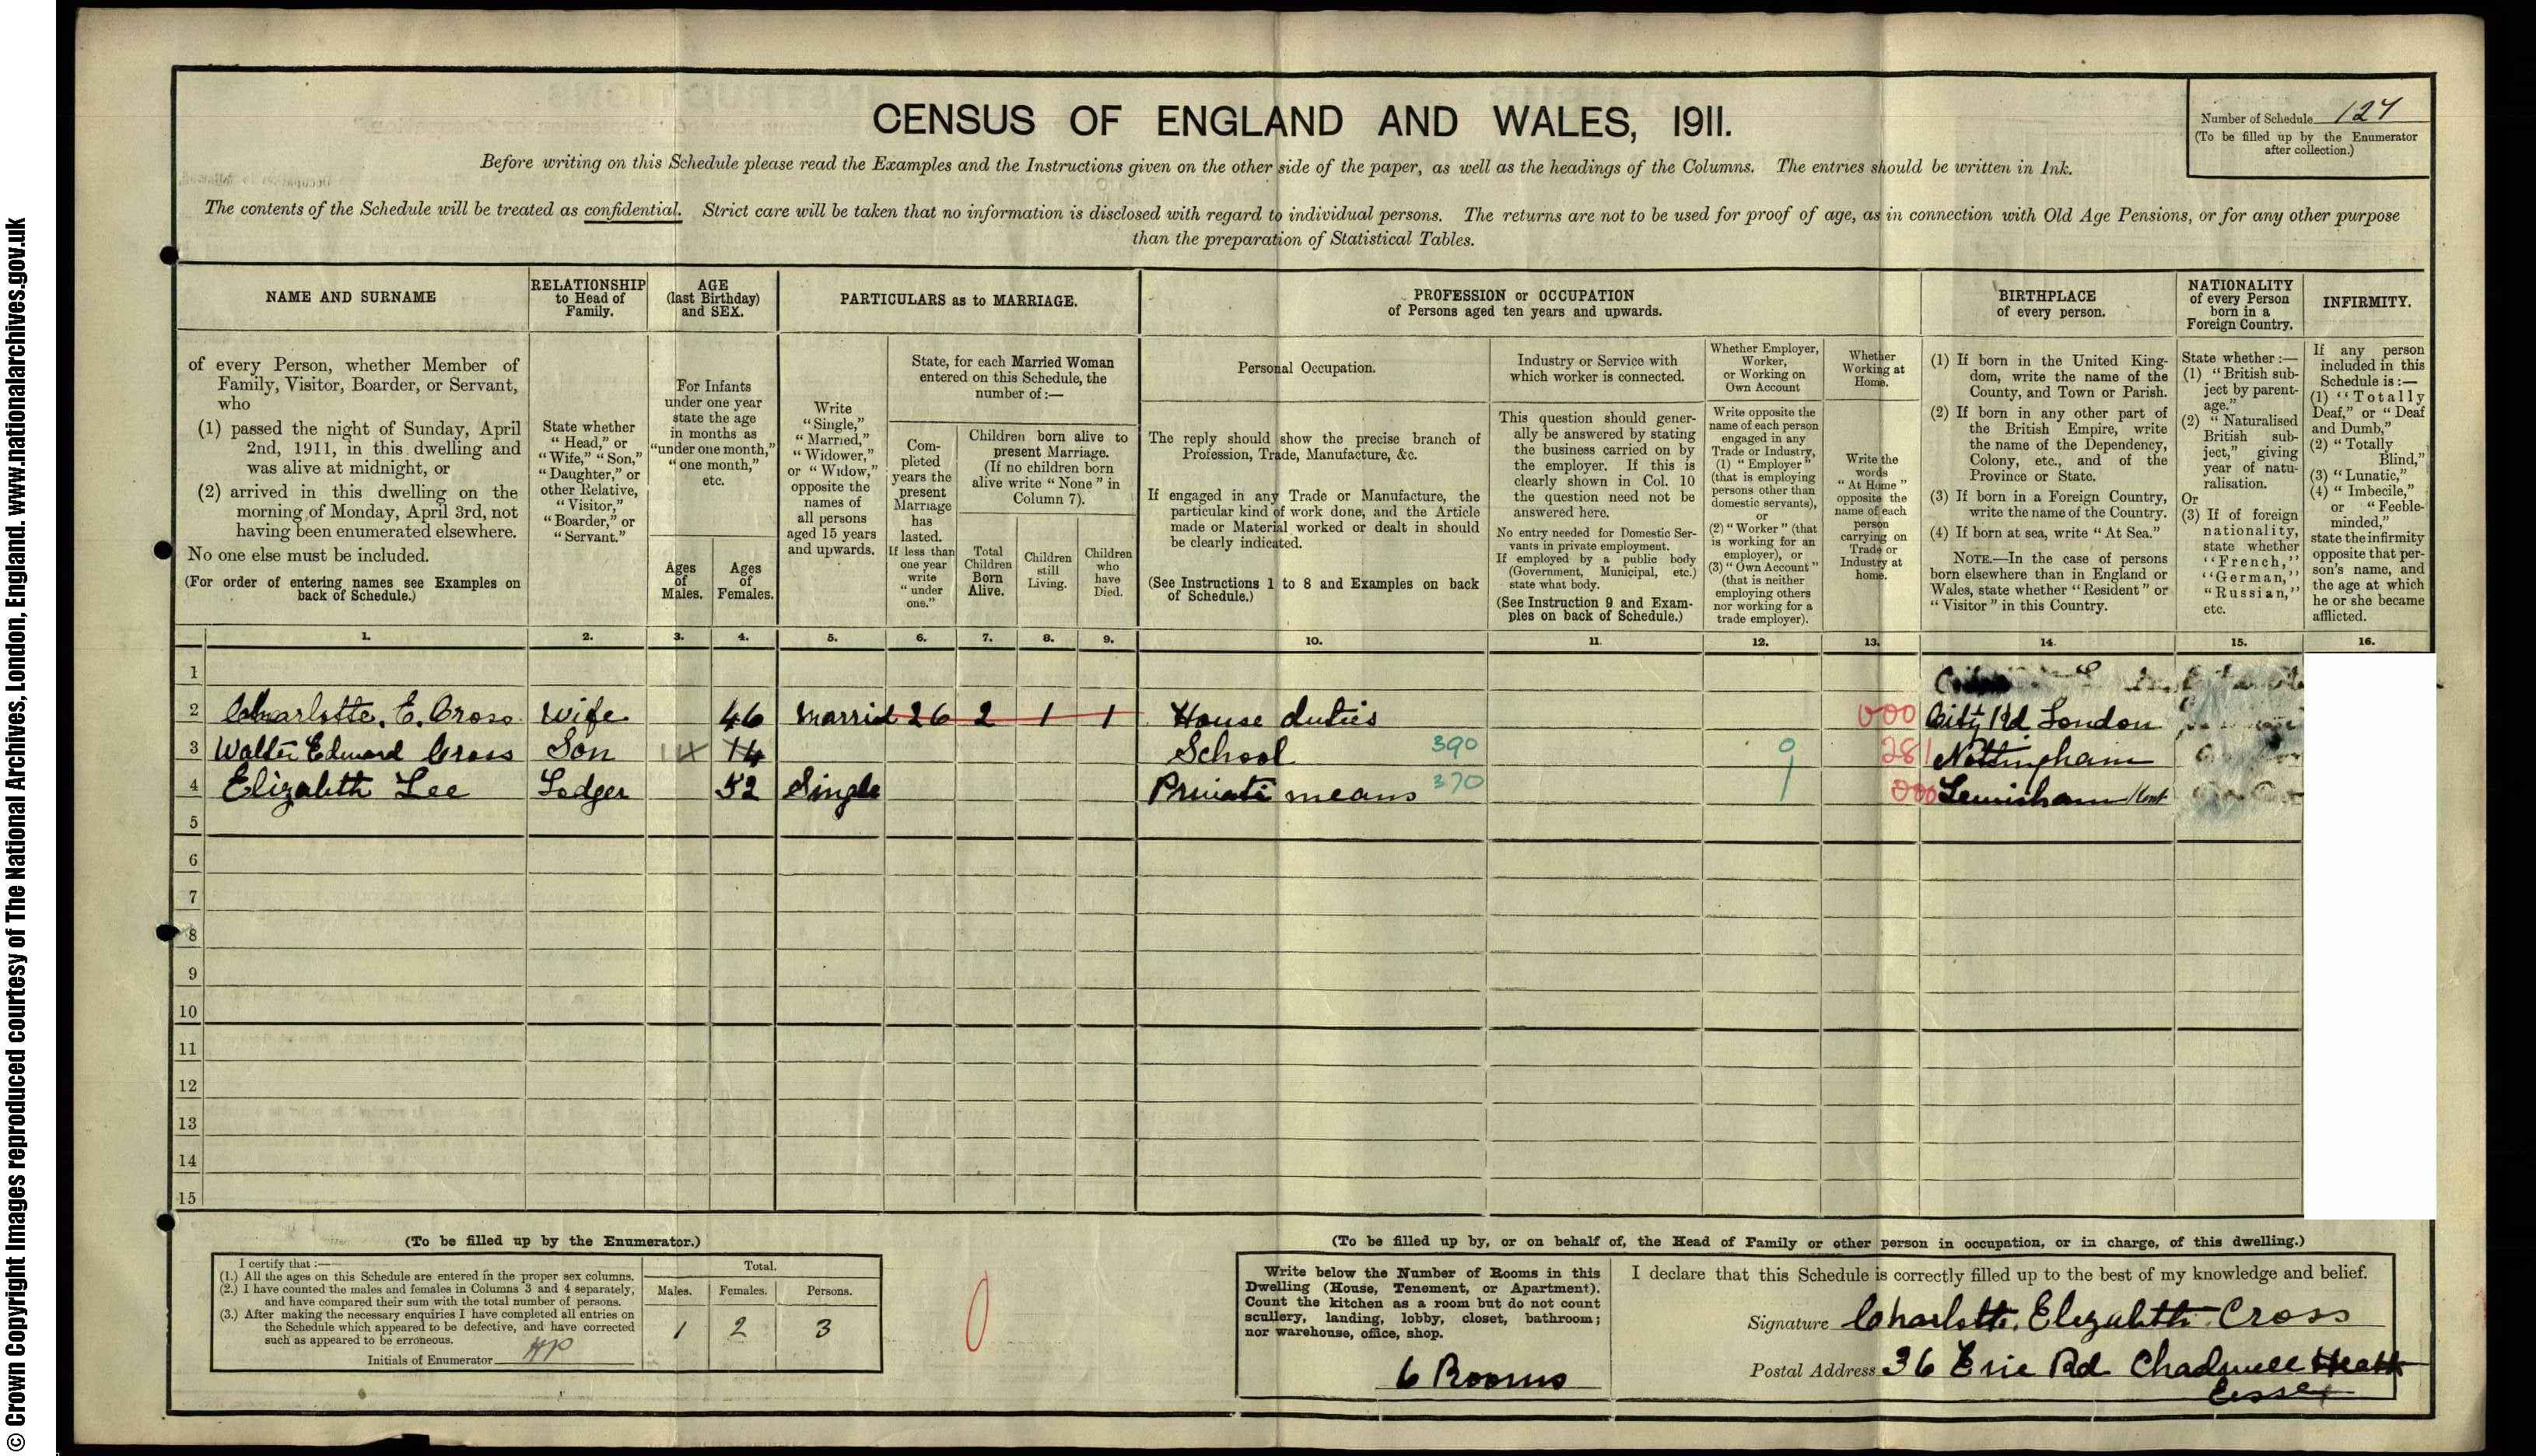 © Crown Copyright Images reproduced courtesy of The National Archives, London, England. www.nationalarchives.gov.uk
CENSUS OF ENGLAND AND WALES, 1911.
Number of Schedule 127
(To be filled up by the Enumerator
after collection.)
Before writing on this Schedule please read the Examples and the Instructions given on the other side of the paper, as well as the headings of the Columns. The entries should be written in Ink.
The contents of the Schedule will be treated as confidential. Strict care will be taken that no information is disclosed with regard to individual persons. The returns are not to be used for proof of age, as in connection with Old Age Pensions, or for any other purpose
than the preparation of Statistical Tables.
NAME AND SURNAME
of every Person, whether Member of
Family, Visitor, Boarder, or Servant,
who
(1) passed the night of Sunday, April
2nd, 1911, in this dwelling and
was alive at midnight, or
(2) arrived in this dwelling on the
morning of Monday, April 3rd, not
having been enumerated elsewhere.
No one else must be included.
(For order of entering names see Examples on
back of Schedule.)
RELATIONSHIP
to Head of
Family.
State whether
"Head," or
"Wife," "Son,"
"Daughter," or
other Relative,
"Visitor,"
"Boarder," or
"Servant."
AGE
(last Birthday)
and SEX.
For Infants
under one year
state the age
in months as
"under one month,"
"one month,"
etc.
Ages
of
Males.
Ages
of
Females.
PARTICULARS as to MARRIAGE.
Write
"Single,"
"Married,"
"Widower,"
or "Widow,"
opposite the
names of
all persons
aged 15 years
and upwards.
State, for each Married Woman
entered on this Schedule, the
number of:—
Com-
pleted
years the
present
Marriage
has
lasted.
If less than
one year
write
"under
one."
Children born alive to
present Marriage.
(If no children born
alive write "None" in
Column 7).
Total
Children
Born
Alive.
Children
still
Living.
Children
who
have
Died.
PROFESSION or OCCUPATION
of Persons aged ten years and upwards.
Personal Occupation.
The reply should show the precise branch of
Profession, Trade, Manufacture, &c.
If engaged in any Trade or Manufacture, the
particular kind of work done, and the Article
made or Material worked or dealt in should
be clearly indicated.
(See Instructions 1 to 8 and Examples on back
of Schedule.)
Industry or Service with
which worker is connected.
This question should gener-
ally be answered by stating
the business carried on by
the employer. If this is
clearly shown in Col. 10
the question need not be
answered here.
No entry needed for Domestic Ser-
vants in private employment.
If employed by a public body
(Government, Municipal, etc.)
state what body.
(See Instruction 9 and Exam-
ples on back of Schedule.)
Whether Employer,
Worker,
or Working on
Own Account
Write opposite the
name of each person
engaged in any
Trade or Industry,
(1) "Employer"
(that is employing
persons other than
domestic servants),
or
(2) "Worker" (that
is working for an
employer), or
(3) "Own Account"
(that is neither
employing others
nor working for a
trade employer).
Whether
Working at
Home.
Write the
words
"At Home"
opposite the
name of each
person
carrying on
Trade or
Industry at
home.
BIRTHPLACE
of every person.
(1) If born in the United King-
dom, write the name of the
County, and Town or Parish.
(2) If born in any other part of
the British Empire, write
the name of the Dependency,
Colony, etc., and of the
Province or State.
(3) If born in a Foreign Country,
write the name of the Country.
(4) If born at sea, write "At Sea."
NOTE.—In the case of persons
born elsewhere than in England or
Wales, state whether "Resident" or
"Visitor" in this Country.
NATIONALITY
of every Person
born in a
Foreign Country.
State whether:—
(1) "British sub-
ject by parent-
age."
(2) "Naturalised
British sub-
ject," giving
year of natu-
ralisation.
Or
(3) If of foreign
nationality,
state whether
"French,"
"German,"
"Russian,"
etc.
INFIRMITY.
If any person
included in this
Schedule is:—
(1) "Totally
Deaf," or "Deaf
and Dumb,"
(2) "Totally
Blind,"
(3) "Lunatic,"
(4) "Imbecile,"
or "Feeble-
minded,"
state the infirmity
opposite that per-
son's name, and
the age at which
he or she became
afflicted.
1. 2. 3. 4. 5. 6. 7. 8. 9. 10. 11. 12. 13. 14. 15. 16.
1
2 Charlotte. E. Cross Wife 46 Marrid 26 2 1 1 House duties 000 City Rd London
3 Walter Edward Cross Son 14 14 School 390 0 281 Nottingham
4 Elizabeth Lee Lodger 52 Single Private means 370 1 000 Lewisham Kent
5
6
7
8
9
10
11
12
13
14
15
(To be filled up by the Enumerator.)
I certify that:—
(1.) All the ages on this Schedule are entered in the proper sex columns.
(2.) I have counted the males and females in Columns 3 and 4 separately,
and have compared their sum with the total number of persons.
(3.) After making the necessary enquiries I have completed all entries on
the Schedule which appeared to be defective, and have corrected
such as appeared to be erroneous.
Initials of Enumerator
Total.
Males. Females. Persons.
1 2 3
0
(To be filled up by, or on behalf of, the Head of Family or other person in occupation, or in charge, of this dwelling.)
Write below the Number of Rooms in this
Dwelling (House, Tenement, or Apartment).
Count the kitchen as a room but do not count
scullery, landing, lobby, closet, bathroom;
nor warehouse, office, shop.
6 Rooms
I declare that this Schedule is correctly filled up to the best of my knowledge and belief.
Signature Charlotte. Elizabeth. Cross
Postal Address 36 Eric Rd Chadwell Heath
Essex